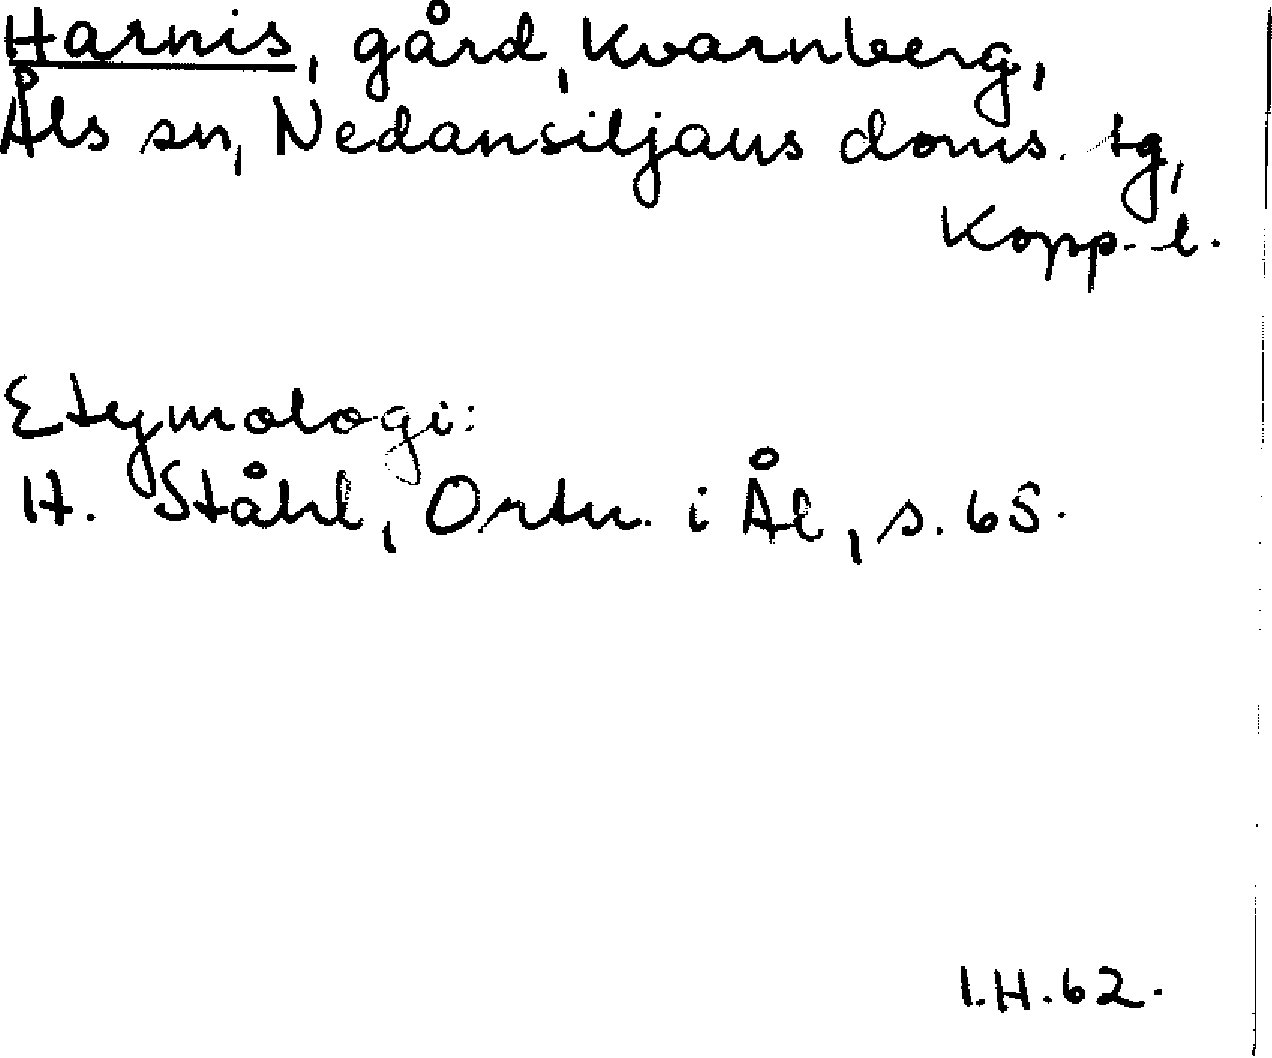 Harnis, gård, Kvarnberg,
Åls sn, Nedansiljans doms. tg,
Kopp. l.
Etymologi:
H. Ståhl, Ortn. i Ål, s. 65.
I.H.62.